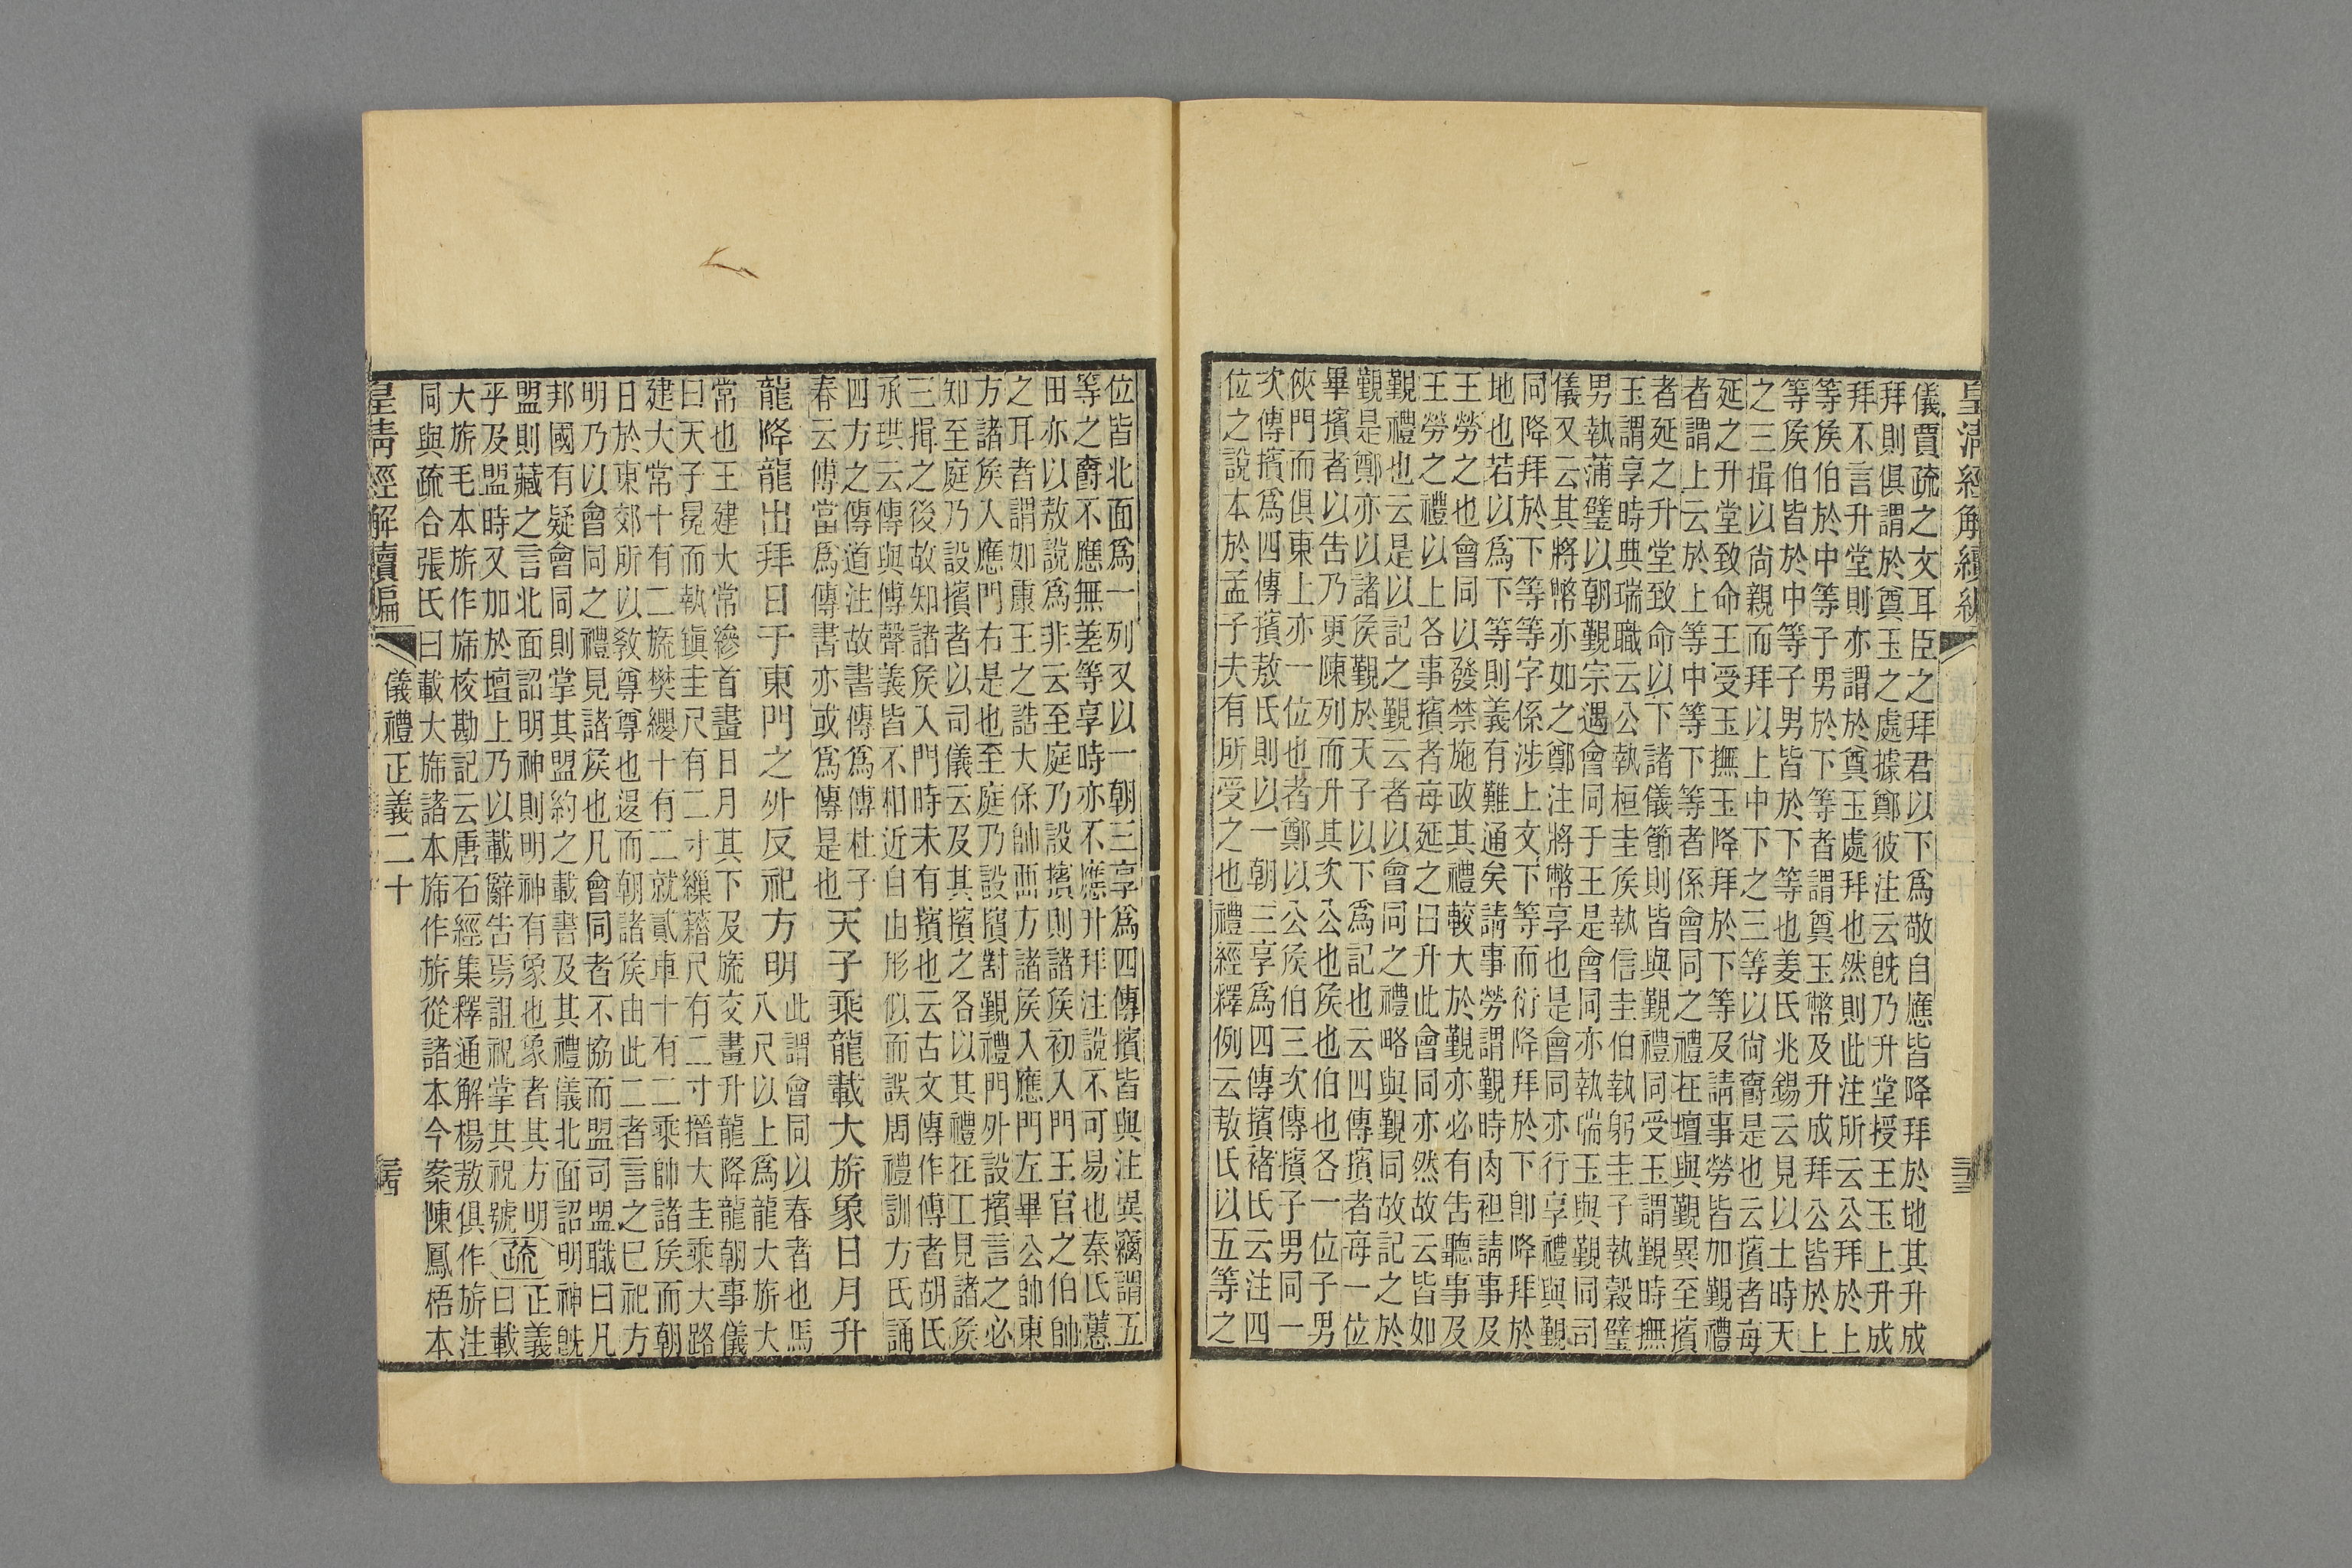 皇清經解續編
儀賈疏之文耳臣之拜君以下為敬自應皆降拜於地其升成
拜則俱謂於奠玉之處據鄭彼注云旣乃升堂授王玉上升成
拜不言升堂則亦謂於奠玉處拜也然則此注所云公拜於上
等矦伯於中等子男於下等者謂奠玉幣及升成拜公皆於上
等矦伯皆於中等子男皆於下等也姜氏兆錫云見以土時天
之三揖以尙親而拜以上中下之三等以尙爵是也云擯者每
延之升堂致命王受玉撫玉降拜於下等及請事勞皆加覲禮
者謂上云於上等中等下等者係會同之禮在壇與覲異至擯
者延之升堂致命以下諸儀節則皆與覲禮同受玉謂覲時撫
玉謂享時典瑞職云公執桓圭矦執信圭伯執躬圭子執穀璧
男執蒲璧以朝覲宗遇會同于王是會同亦執瑞玉與覲同司
儀又云其將幣亦如之鄭注將幣享也是會同亦行享禮與覲
同降拜於下等等字係涉上文下等而衍降拜於下卽降拜於
地也若以為下等則義有難通矣請事勞謂覲時肉袒請事及
王勞之也會同以發禁施政其禮較大於覲亦必有告聽事及
王勞之禮以上各事擯者每延之曰升此會同亦然故云皆如
覲禮也云是以記之覲云者以會同之禮略與覲同故記之於
覲是鄭亦以諸矦覲於天子以下為記也云四傳擯者每一位
畢擯者以告乃更陳列而升其次公也矦也伯也各一位子男
俠門而俱東上亦一位也者鄭以公矦伯三次傳擯子男同一
次傳擯為四傳擯敖氏則以一朝三享為四傳擯褚氏云注四
位之說本於孟子夫有所受之也禮經釋例云敖氏以五等之
位皆北面為一列又以一朝三享為四傳擯皆與注異竊謂五
等之爵不應無差等享時亦不應升拜注說不可易也秦氏蕙
田亦以敖說為非云至庭乃設擯則諸矦初入門王官之伯帥
之耳者謂如康王之誥大保帥西方諸矦入應門左畢公帥東
方諸矦入應門右是也至庭乃設擯對覲禮門外設擯言之必
知至庭乃設擯者以司儀云及其擯之各以其禮在工見諸矦
三揖之後故知諸矦入門時未有擯也云古文傳作傅者胡氏
承珙云傳與傅聲義皆不相近自由形似而誤周禮訓方氏誦
四方之傳道注故書傳為傅杜子
春云傅當為傳書亦或為傳是也
天子乘龍載大旂象日月升
龍降龍出拜日于東門之外反祀方明
此謂會同以春者也馬
八尺以上為龍大旂大
常也王建大常縿首畫日月其下及旒交畫升龍降龍朝事儀
曰天子冕而執鎭圭尺有二寸繅藉尺有二寸搢大圭乘大路
建大常十有二旒樊纓十有二就貳車十有二乘帥諸矦而朝
日於東郊所以敎尊尊也退而朝諸矦由此二者言之已祀方
明乃以會同之禮見諸矦也凡會同者不協而盟司盟職曰凡
邦國有疑會同則掌其盟約之載書及其禮儀北面詔明神旣
盟則藏之言北面詔明神則明神有象也象者其方明
乎及盟時又加於壇上乃以載辭告焉詛祝掌其祝號
疏
正義
曰載
大旂毛本旂作斾校勘記云唐石經集釋通解楊敖俱作旂注
同與疏合張氏曰載大斾諸本斾作旂從諸本今案陳鳳梧本
皇清經解續編
儀禮正義二十